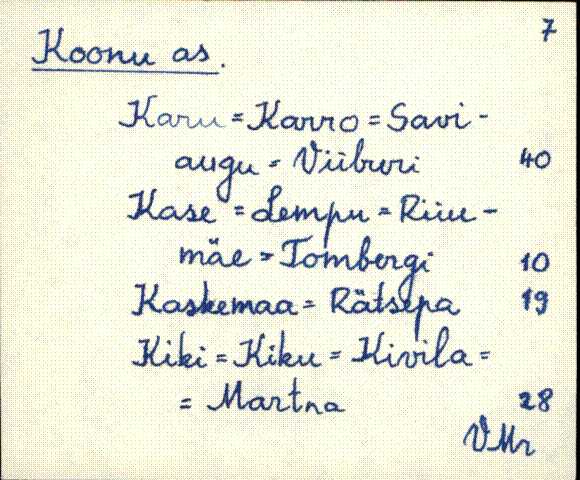 7
Koonu as.
Karu = Karro = Savi-
augu = Viiburi 40
Kase = Lempu = Riiu-
mäe = Tombergi 10
Kaskemaa = Rätsepa 19
Kiki = Kiku = Kivila =
= Martna 28
VMr